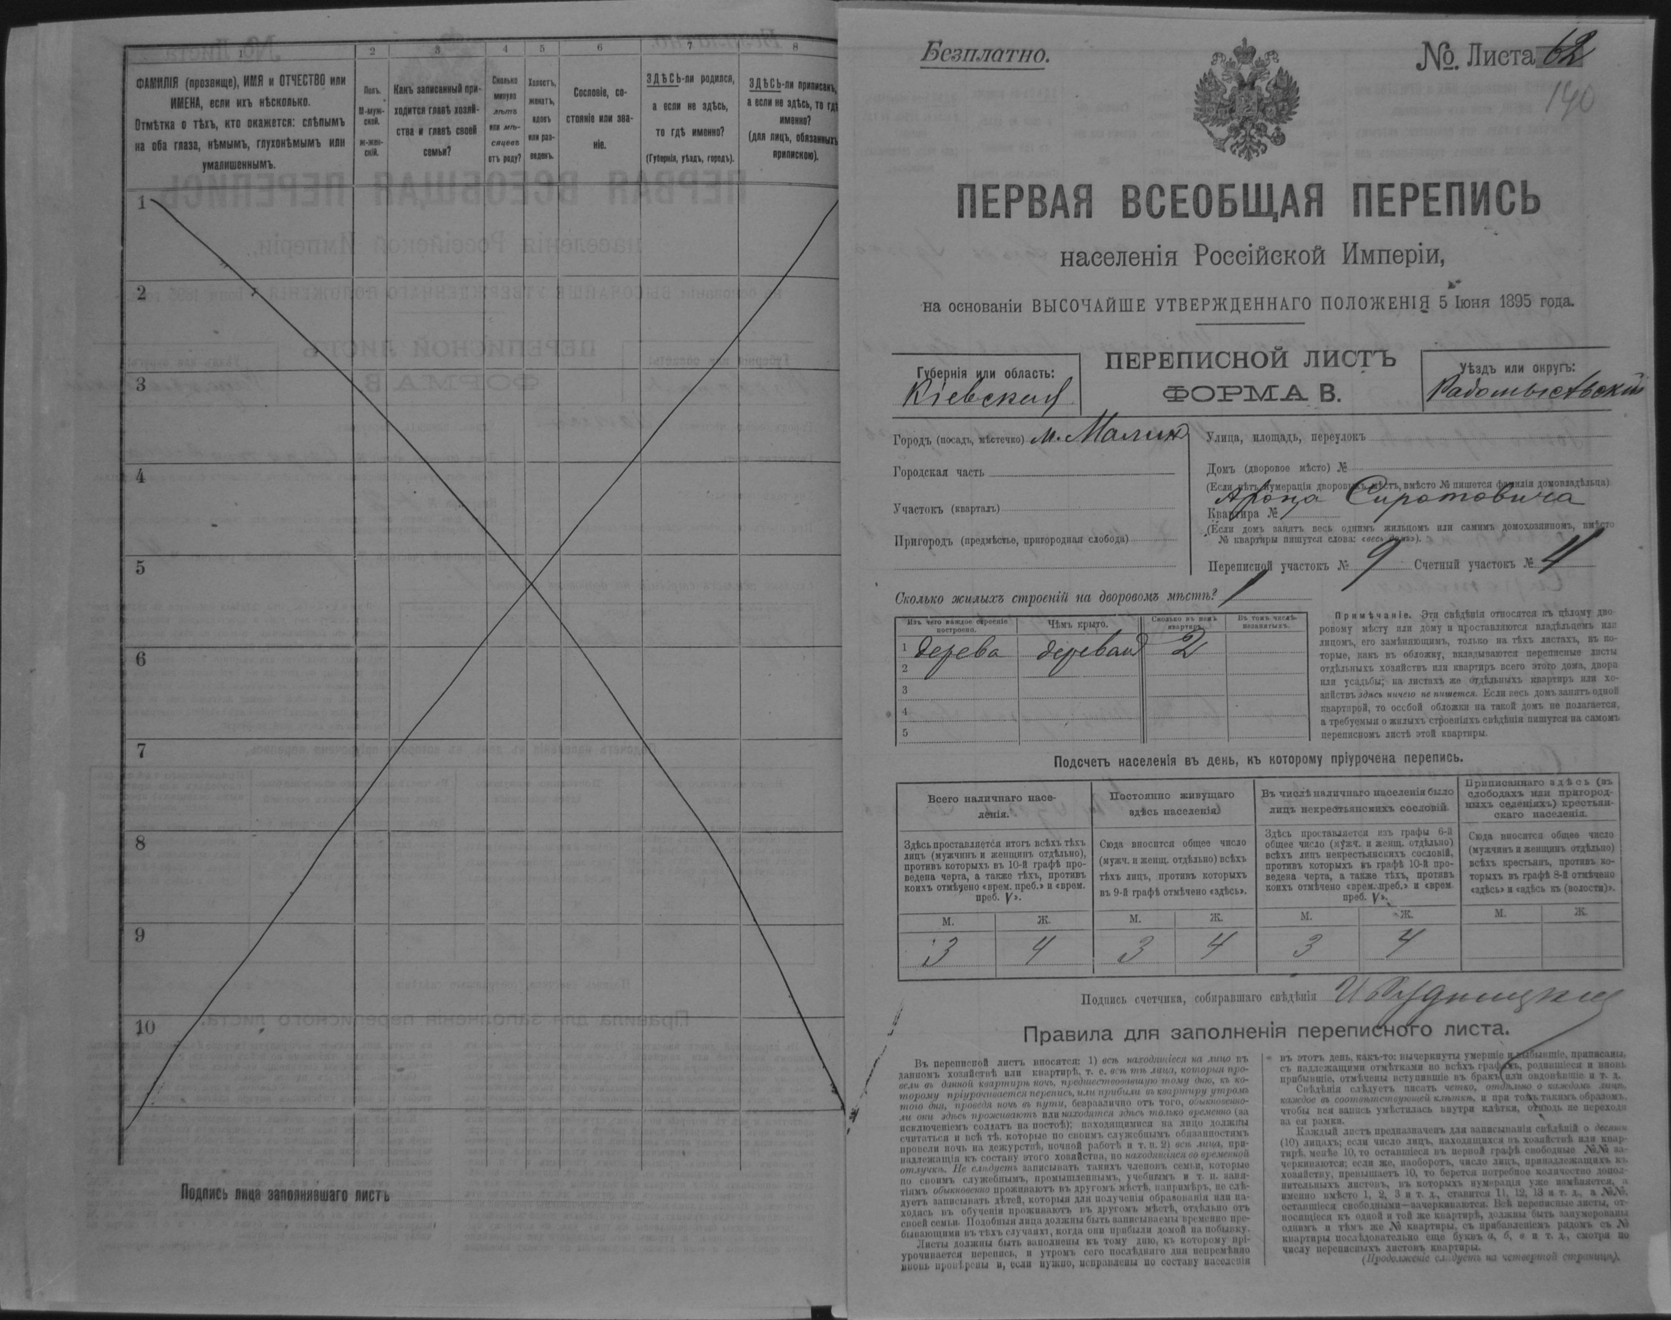 1
2
3
4
5
6
7
8
ФАМИЛІЯ (прозвище), ИМЯ и ОТЧЕСТВО или
ИМЕНА, если ихъ нѣсколько.
Отмѣтка о тѣхъ, кто окажется: слѣпымъ
на оба глаза, нѣмымъ, глухонѣмымъ или
умалишеннымъ.
Полъ.
М-муж-
ской.
ж-жен-
скій.
Какъ записанный при-
ходится главѣ хозяй-
ства и главѣ своей
семьи?
Сколько
минуло
лѣтъ
или мѣ-
сяцевъ
отъ роду?
Холостъ,
женатъ,
вдовъ
или раз-
веденъ.
Сословіе, со-
стояніе или зва-
ніе.
ЗДѢСЬ-ли родился,
а если не здѣсь,
то гдѣ именно?
(Губернія, уѣздъ, городъ).
ЗДѢСЬ-ли приписанъ,
а если не здѣсь, то гдѣ
именно?
(для лицъ, обязанныхъ
припискою).
1
2
3
4
5
6
7
8
9
10
Подпись лица заполнявшаго листъ
Безплатно.
№ Листа 62
190
ПЕРВАЯ ВСЕОБЩАЯ ПЕРЕПИСЬ
населенія Россійской Имперіи,
на основаніи ВЫСОЧАЙШЕ УТВЕРЖДЕННАГО ПОЛОЖЕНІЯ 5 Іюня 1895 года.
ПЕРЕПИСНОЙ ЛИСТЪ
ФОРМА В.
Губернія или область:
Кіевская
Уѣздъ или округъ:
Радомысльскій
Городъ (посадъ, мѣстечко) м. Малин
Городская часть
Участокъ (кварталъ)
Пригородъ (предмѣстье, пригородная слобода)
Улица, площадь, переулокъ
Домъ (дворовое мѣсто) №
(Если нѣтъ нумераціи дворовыхъ мѣстъ, вмѣсто № пишется фамилія домовладѣльца)
Арона Сиротовича
Квартира №
(Если домъ занятъ весь однимъ жильцомъ или самимъ домохозяиномъ, вмѣсто
№ квартиры пишутся слова: «весь домъ»).
Переписной участокъ № 9 Счетный участокъ № 4
Сколько жилыхъ строеній на дворовомъ мѣстѣ? 1
Изъ чего каждое строеніе
построено.
Чѣмъ крыто.
Сколько въ немъ
квартиръ.
Въ томъ числѣ
незанятыхъ.
1 дерева 2
2
3
4
5
Примѣчаніе. Эти свѣдѣнія относятся къ цѣлому дво-
ровому мѣсту или дому и проставляются владѣльцемъ или
лицомъ, его замѣняющимъ, только на тѣхъ листахъ, въ ко-
торые, какъ въ обложку, вкладываются переписные листы
отдѣльныхъ хозяйствъ или квартиръ всего этого дома, двора
или усадьбы; на листахъ же отдѣльныхъ квартиръ или хо-
зяйствъ здѣсь ничего не пишется. Если весь домъ занятъ одной
квартирой, то особой обложки на такой домъ не полагается,
а требуемыя о жилыхъ строеніяхъ свѣдѣнія пишутся на самомъ
переписномъ листѣ этой квартиры.
Подсчетъ населенія въ день, къ которому пріурочена перепись.
Всего наличнаго насе-
ленія.
Постоянно живущаго
здѣсь населенія
Въ числѣ наличнаго населенія было
лицъ некрестьянскихъ сословій.
Приписаннаго здѣсь (въ
слободахъ или пригород-
ныхъ селеніяхъ) крестьян-
скаго населенія.
Здѣсь проставляется итогъ всѣхъ тѣхъ
лицъ (мужчинъ и женщинъ отдѣльно),
противъ которыхъ въ 10-й графѣ про-
ведена черта, а также тѣхъ, противъ
коихъ отмѣчено «врем. преб.» и «врем.
проб. V».
Сюда вносится общее число
(мужч. и женщ. отдѣльно) всѣхъ
тѣхъ лицъ, противъ которыхъ
въ 9-й графѣ отмѣчено «здѣсь».
Здѣсь проставляется изъ графы 6-й
общее число (мужч. и женщ. отдѣльно)
всѣхъ лицъ некрестьянскихъ сословій,
противъ которыхъ въ графѣ 10-й про-
ведена черта, а также тѣхъ, противъ
коихъ отмѣчено «врем. преб.» и «врем.
преб. V».
Сюда вносится общее число
(мужчинъ и женщинъ отдѣльно)
всѣхъ крестьянъ, противъ ко-
торыхъ въ графѣ 8-й отмѣчено
«здѣсь» и «здѣсь къ (волости)».
М. Ж. М. Ж. М. Ж. М. Ж.
3 4 3 4 3 4
Подпись счетчика, собиравшаго свѣдѣнія
Правила для заполненія переписного листа.
Въ переписной листъ вносятся: 1) всѣ находящіеся на лицо въ
данномъ хозяйствѣ или квартирѣ, т. е. всѣ тѣ лица, которыя про-
вели въ данной квартирѣ ночь, предшествовавшую тому дню, къ ко-
торому пріурочивается перепись, или прибыли въ квартиру утромъ
того дня, проведя ночь въ пути, безразлично отъ того, обыкновенно-
ли они здѣсь проживаютъ или находятся здѣсь только временно (за
исключеніемъ солдатъ на постоѣ); находящимися на лицо должны
считаться и всѣ тѣ, которые по своимъ служебнымъ обязанностямъ
провели ночь на дежурствѣ, ночной работѣ и т. п. 2) всѣ лица, при-
надлежащія къ составу этого хозяйства, но находящіяся во временной
отлучкѣ. Не слѣдуетъ записывать такихъ членовъ семьи, которые
по своимъ служебнымъ, промышленнымъ, учебнымъ и т. п. заня-
тіямъ обыкновенно проживаютъ въ другомъ мѣстѣ, напримѣръ, не слѣ-
дуетъ записывать дѣтей, которыя для полученія образованія или на-
ходясь въ обученіи проживаютъ въ другомъ мѣстѣ, отдѣльно отъ
своей семьи. Подобныя лица должны быть записываемы временно пре-
бывающими въ тѣхъ случаяхъ, когда они прибыли домой на побывку.
Листы должны быть заполнены къ тому дню, къ которому прі-
урочивается перепись, и утромъ сего послѣдняго дня непремѣнно
вновь провѣрены и, если нужно, исправлены по составу населенія
въ этотъ день, какъ-то: вычеркнуты умершіе и выбывшіе, приписаны,
съ надлежащими отмѣтками во всѣхъ графахъ, родившіеся и вновь
прибывшіе, отмѣчены вступившіе въ бракъ или овдовѣвшіе и т. д.
Свѣдѣнія слѣдуетъ писать четко, отдѣльно о каждомъ лицѣ,
каждое въ соотвѣтствующей клѣткѣ, и при томъ такимъ образомъ,
чтобы вся запись умѣстилась внутри клѣтки, отнюдь не переходя
за ея рамки.
Каждый листъ предназначенъ для записыванія свѣдѣній о десяти
(10) лицахъ; если число лицъ, находящихся въ хозяйствѣ или квар-
тирѣ, менѣе 10, то оставшіеся въ первой графѣ свободные №№ за-
черкиваются; если же, наоборотъ, число лицъ, принадлежащихъ къ
хозяйству, превышаетъ 10, то берется потребное количество допол-
нительныхъ листовъ, въ которыхъ нумерація уже измѣняется, а
именно вмѣсто 1, 2, 3 и т. д., ставится 11, 12, 13 и т. д., а №№,
оставшіеся свободными—зачеркиваются. Всѣ переписные листы, от-
носящіеся къ одной и той же квартирѣ, должны быть занумерованы
однимъ и тѣмъ же № квартиры, съ прибавленіемъ рядомъ съ №
квартиры послѣдовательно еще буквъ а, б, в и т. д., смотря по
числу переписныхъ листовъ квартиры.
(Продолженіе слѣдуетъ на четвертой страницѣ).